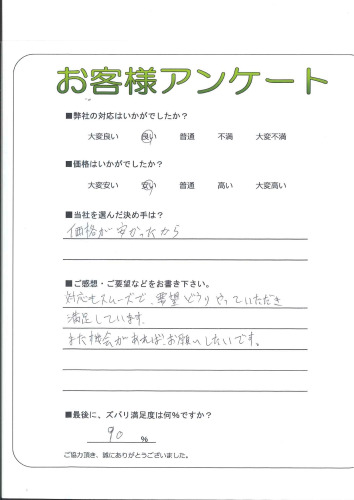 お客様アンケート
■弊社の対応はいかがでしたか?
大変良い 良い 普通 不満 大変不満
■価格はいかがでしたか?
大変安い 安い 普通 高い 大変高い
■当社を選んだ決め手は?
価格が安かったから
■ご感想・ご要望などをお書き下さい。
対応もスムーズで、要望どうりやっていただき
満足しています。
また機会があれば、お願いしたいです。
■最後に、ズバリ満足度は何%ですか?
90 %
ご協力頂き、誠にありがとうございました。